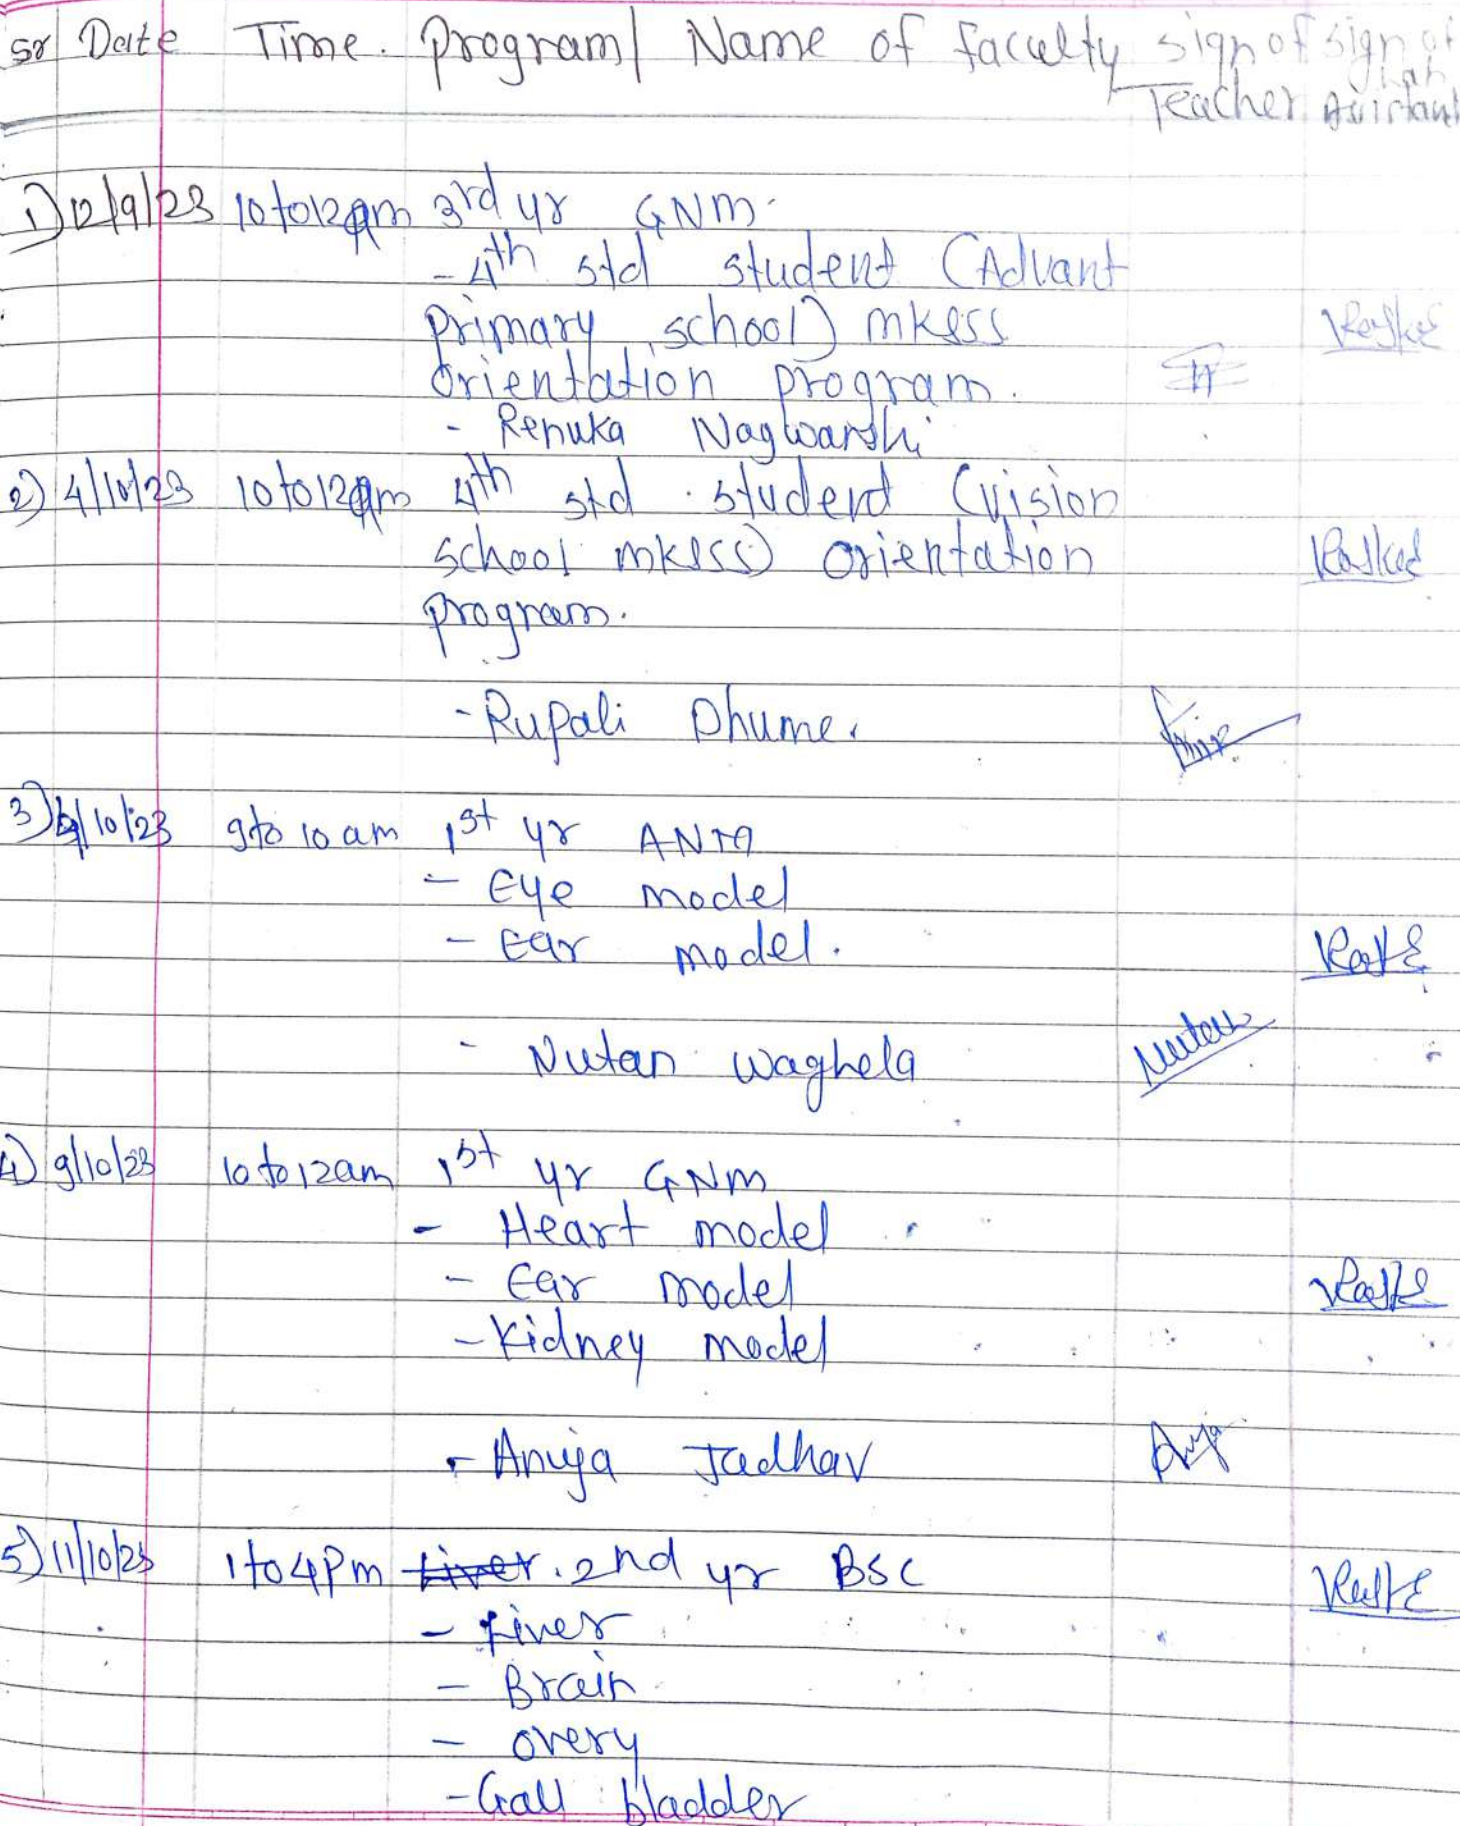 sr Date Time. Program/ Name of faculty sign of sign of
Teacher Lab
Assistant
1) 12/9/23 10 to 12am 3rd yr GNM.
- 4th std student (Advant
primary school) mkess
orientation program.
- Renuka Nagwanshi
2) 4/10/23 10 to 12am 4th std student (vision
school mkess) orientation
program.
- Rupali Dhume.
3) /10/23 9 to 10 am 1st yr ANM
- Eye model
- Ear model.
- Nutan Waghela Nutan
4) 9/10/23 10 to 12am 1st yr GNM
- Heart model
- Ear model
- Kidney model
- Anuja Jadhav Anuja
5) 11/10/23 1 to 4 Pm Liver. 2nd yr BSC
- Liver
- Brain
- overy
- Gall bladder